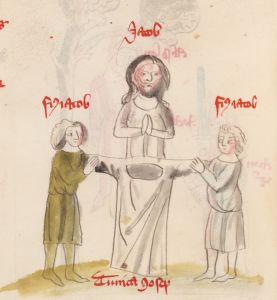 Jacob
fiꝰ iacob
fiꝰ iacob
Tunica Josep